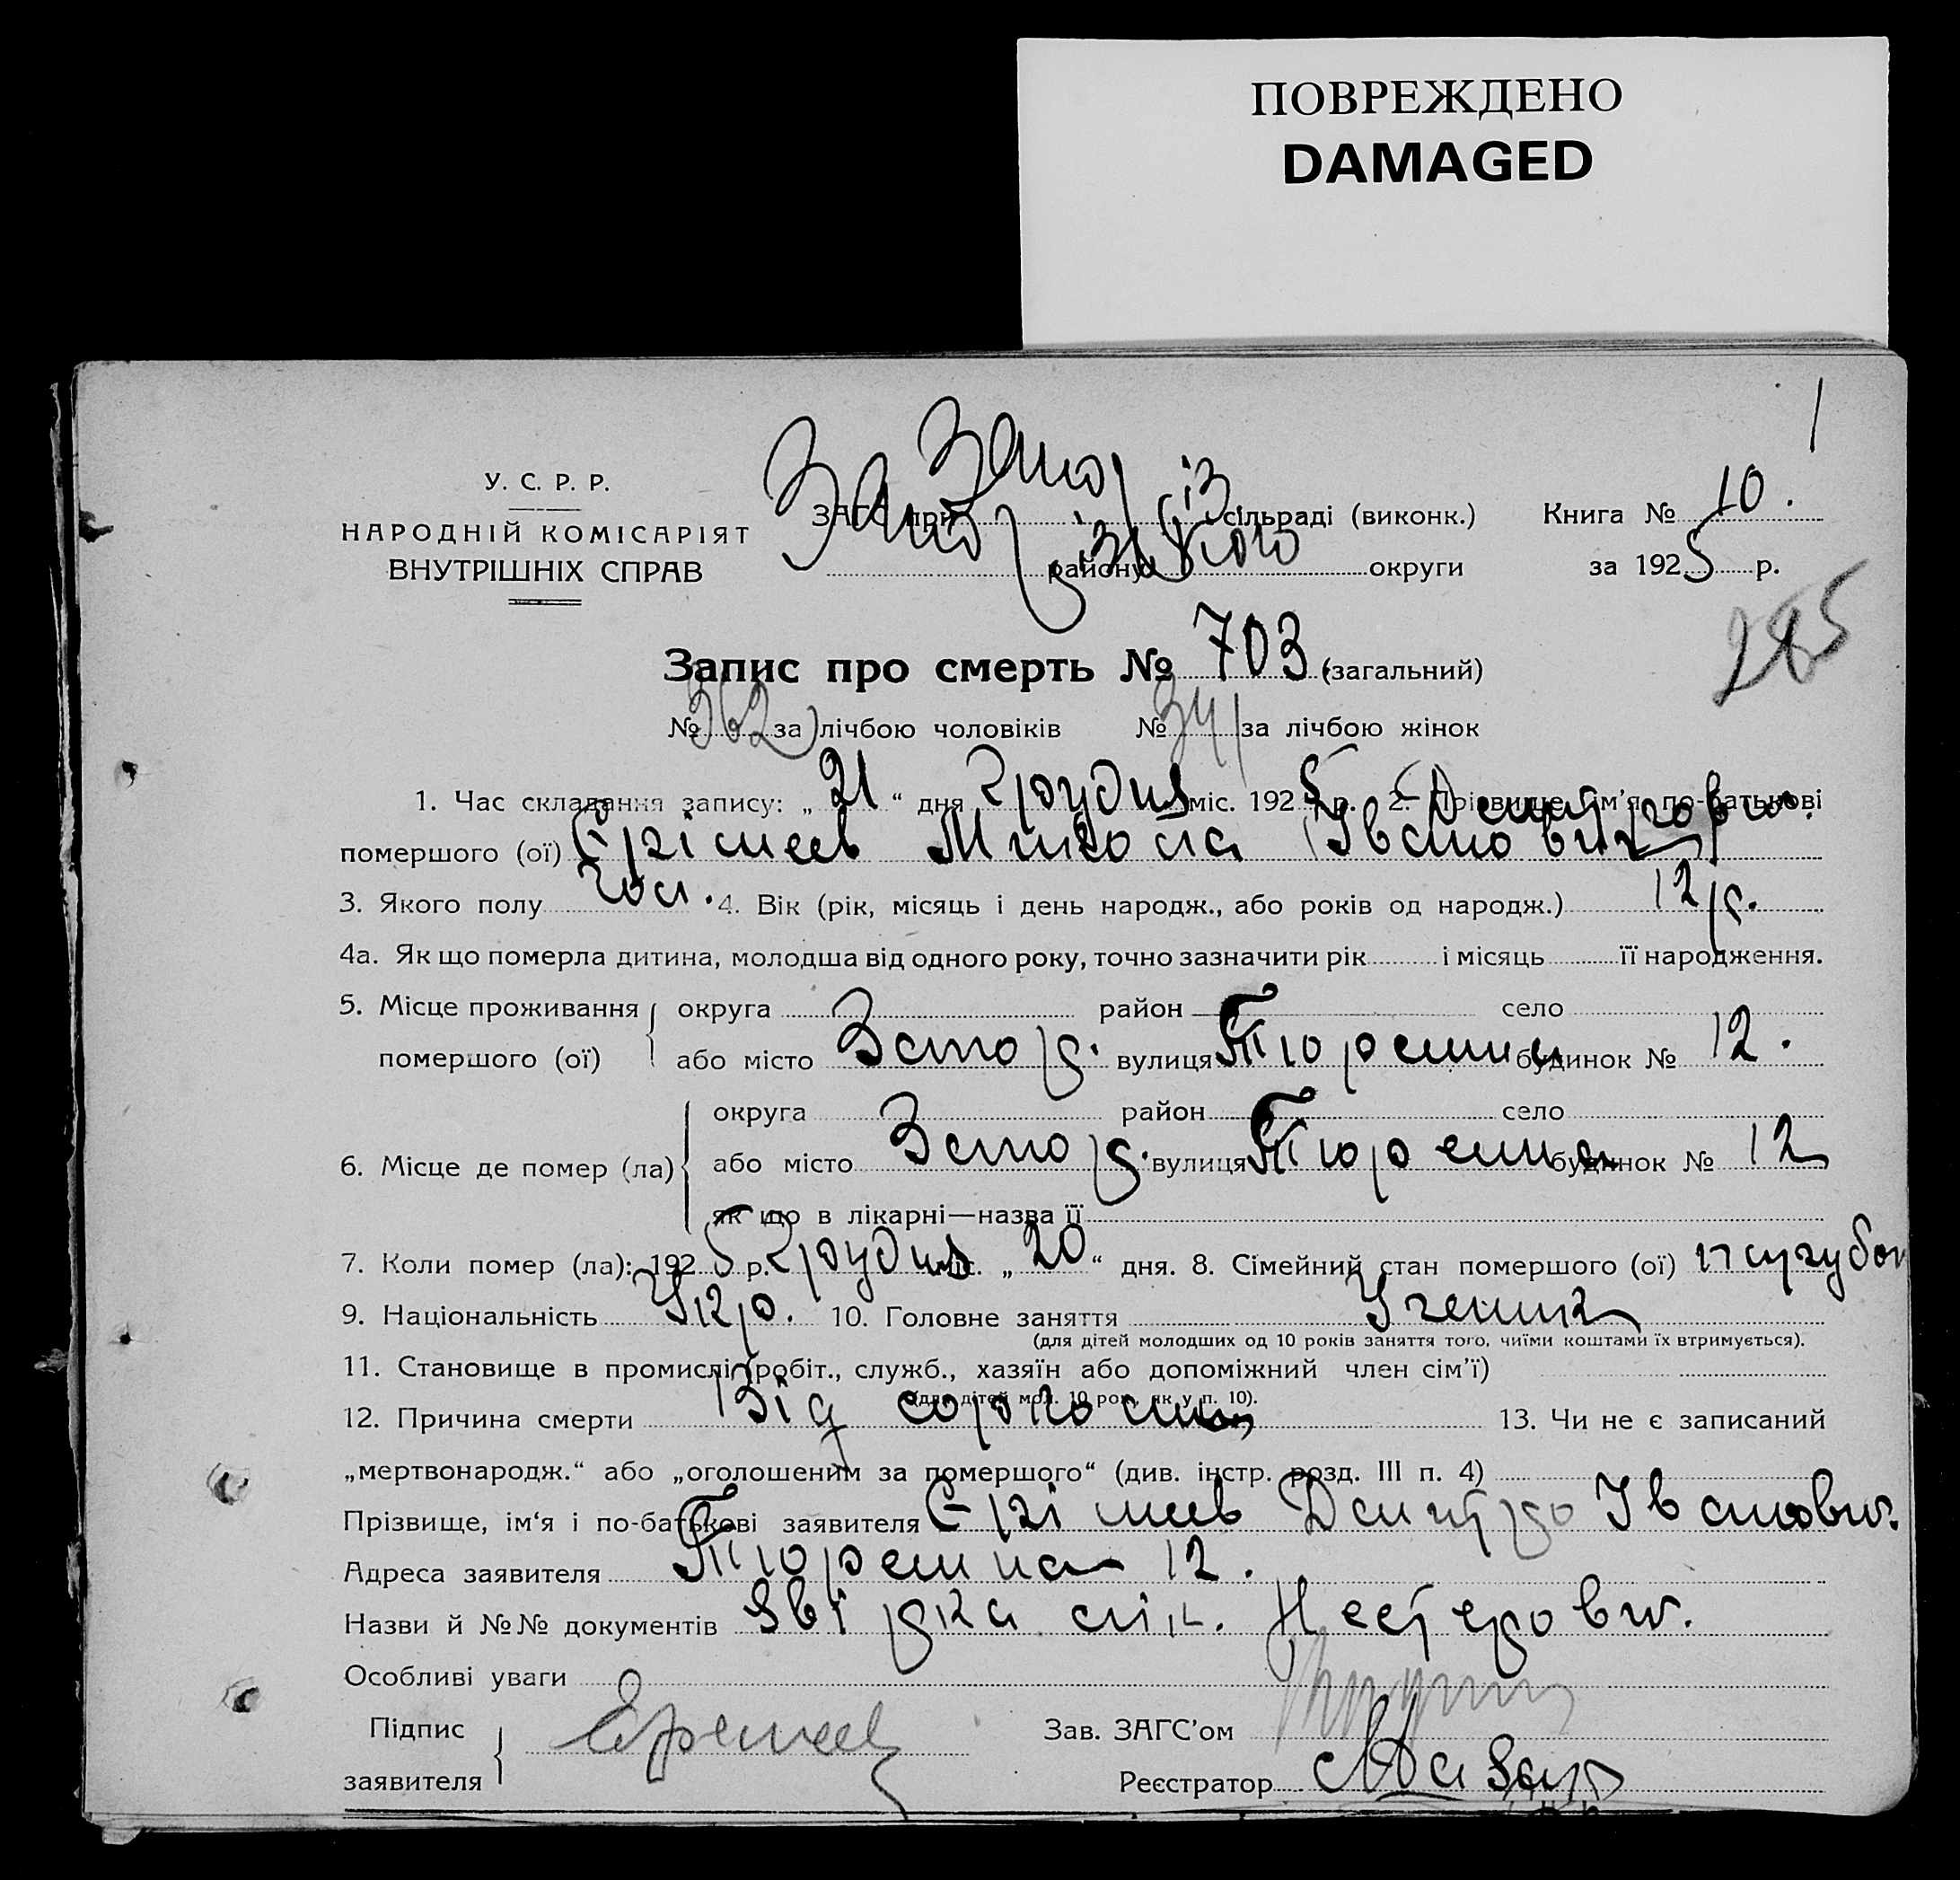 ПОВРЕЖДЕНО
DAMAGED
У. С. Р. Р.
НАРОДНІЙ КОМІСАРІЯТ
ВНУТРІШНІХ СПРАВ
ЗАГС при Запоріз сільраді (виконк.) Книга № 10.
Запорізького району округи за 1925 р.
285
Запис про смерть № 703 (загальний)
№ 362 за лічбою чоловіків № 341 за лічбою жінок
1. Час складання запису: „21“ дня Грудня міс. 1925 р. 2. Прізвище, ім'я, по-батькові Дмитрович.
помершого (ої) Єрімеев Микола (Іванович)
3. Якого полу чол. 4. Вік (рік, місяць і день народж., або років од народж.) 12 р.
4а. Як що померла дитина, молодша від одного року, точно зазначити рік і місяць її народження.
5. Місце проживання помершого (ої) округа район село
або місто Запор. вулиця будинок № 12.
6. Місце де помер (ла) округа район село
або місто Запор. вулиця будинок № 12
як що в лікарні—назва її
7. Коли помер (ла): 1925 р. Грудня міс. „20“ дня. 8. Сімейний стан помершого (ої) парубок
9. Національність Укр. 10. Головне заняття Ученик
(для дітей молодших од 10 років заняття того, чиїми коштами їх втримується).
11. Становище в промислі (робіт., служб., хазяїн або допоміжний член сім'ї)
(для дітей мол. 10 рок., як у п. 10).
12. Причина смерти Від 13. Чи не є записаний
„мертвонародж.“ або „оголошеним за помершого“ (див. інстр. розд. III п. 4)
Прізвище, ім'я і по-батькові заявителя Єрімеев Дмитро Іванович.
Адреса заявителя 12.
Назви й №№ документів Звірка лік. Нестерович.
Особливі уваги
Підпис заявителя Еремеев Зав. ЗАГС'ом
Реєстратор